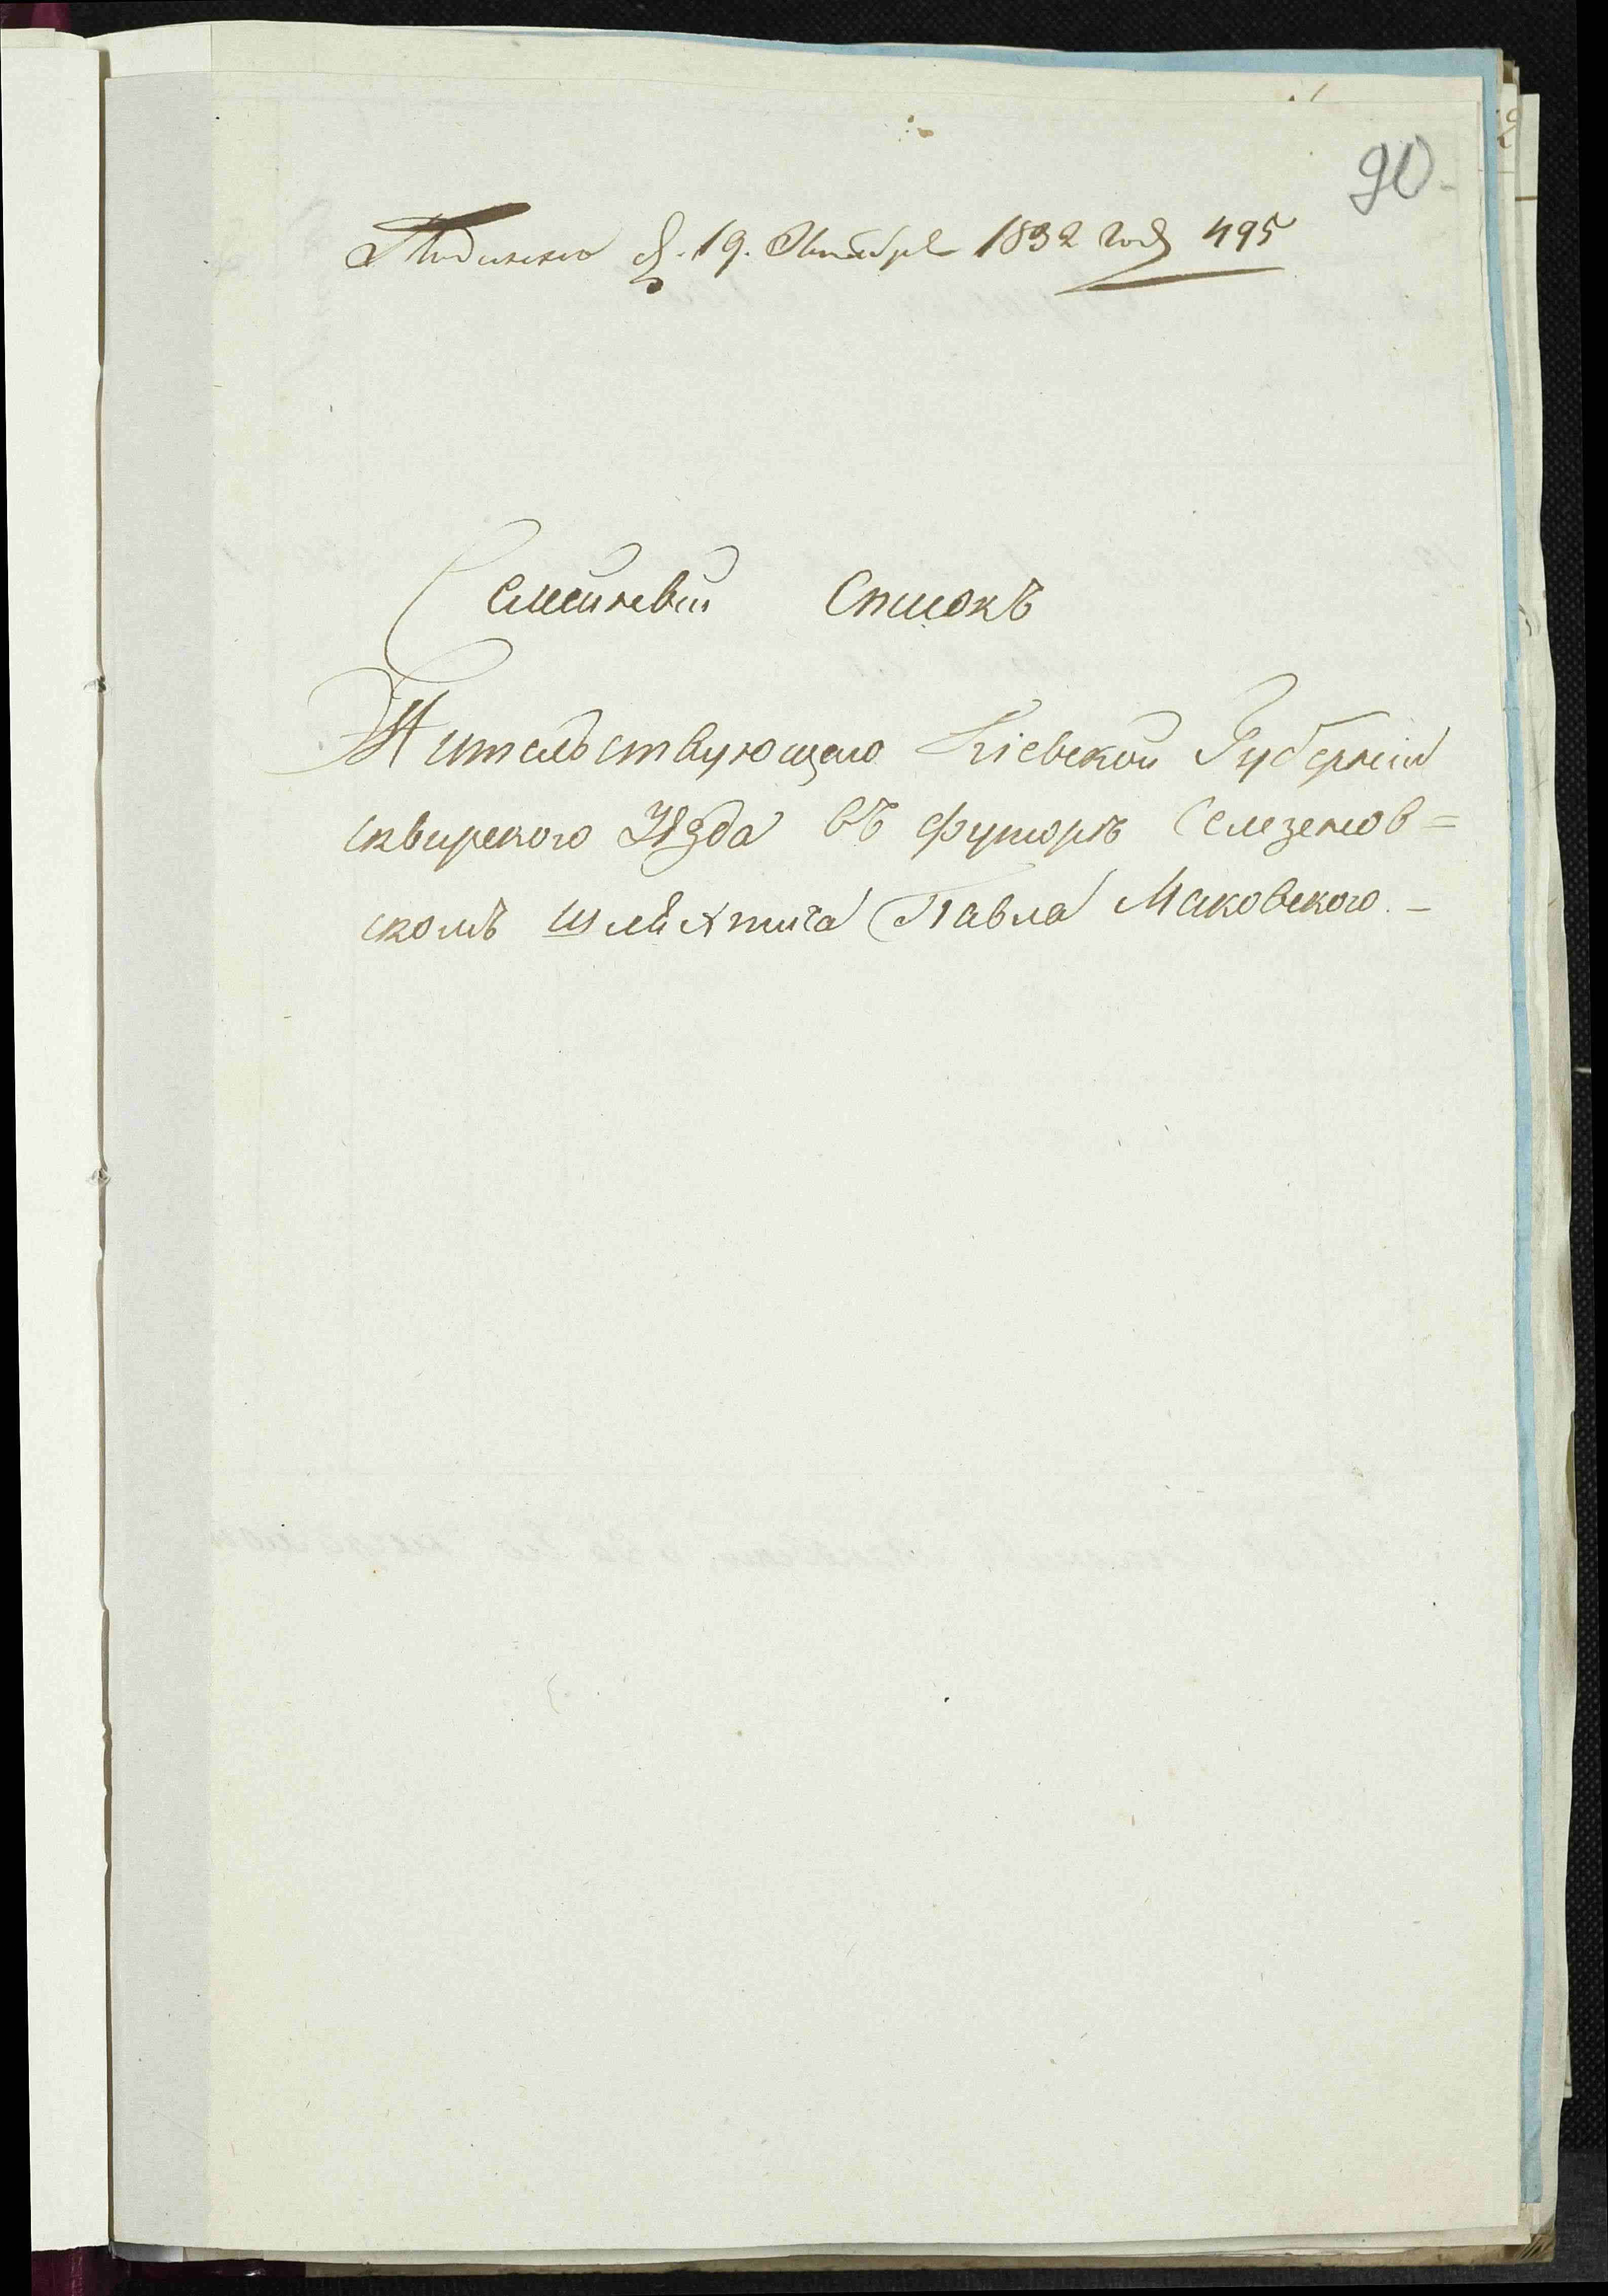 90
Подинено д. 19. Октября 1832 года 495
Семейный Списокъ
Жительствующего Кіевской Губерніи
сквирского уѣзда въ футорѣ Селезенов=
скомъ шляхтича Павла Маковского. –